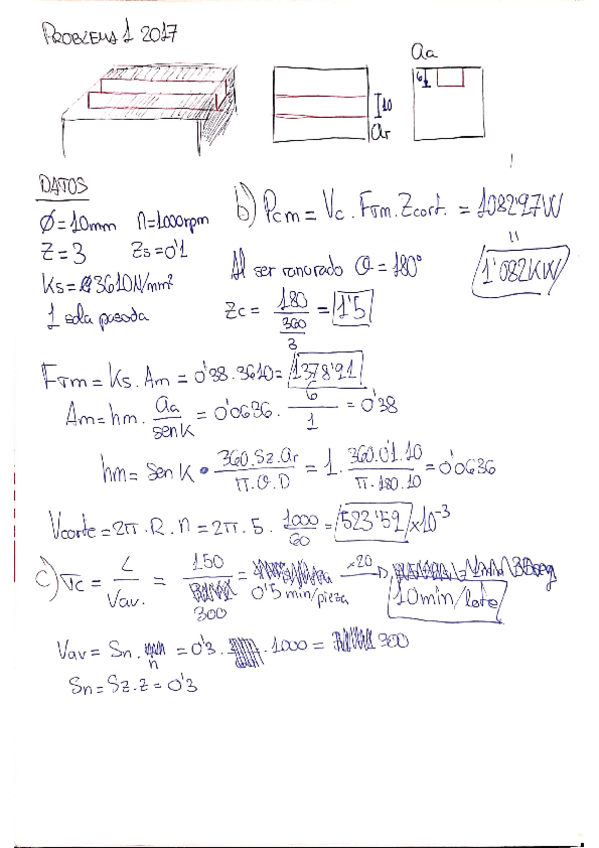 PROBLEMA 1 2017
aa
6
10
ar
DATOS
Ø=10mm n=1000rpm
Z=3 Zs=0'1
Ks=3610N/mm²
1 sola pasada
b) Pcm = Vc. Ftm. Zcort. = 1082'97W
=
1'082KW
Al ser ranurado Θ=180°
Zc = 180 / 360/3 = 1'5
Ftm = Ks. Am = 0'38.3610 = 1378'91
Am = hm. aa/senK = 0'0636. 6/1 = 0'38
hm = senK • 360.Sz.ar / π.Θ.D = 1. 360.0'1.10 / π.180.10 = 0'0636
Vcorte = 2π.R.n = 2π.5. 1000/60 = 523'59 x10⁻³
c) Tc = L/Vav. = 150/300 = 0'5min/pieza x20 → 10min/lote
Vav = Sn. n = 0'3. 1000 = 300
Sn = Sz.z = 0'3